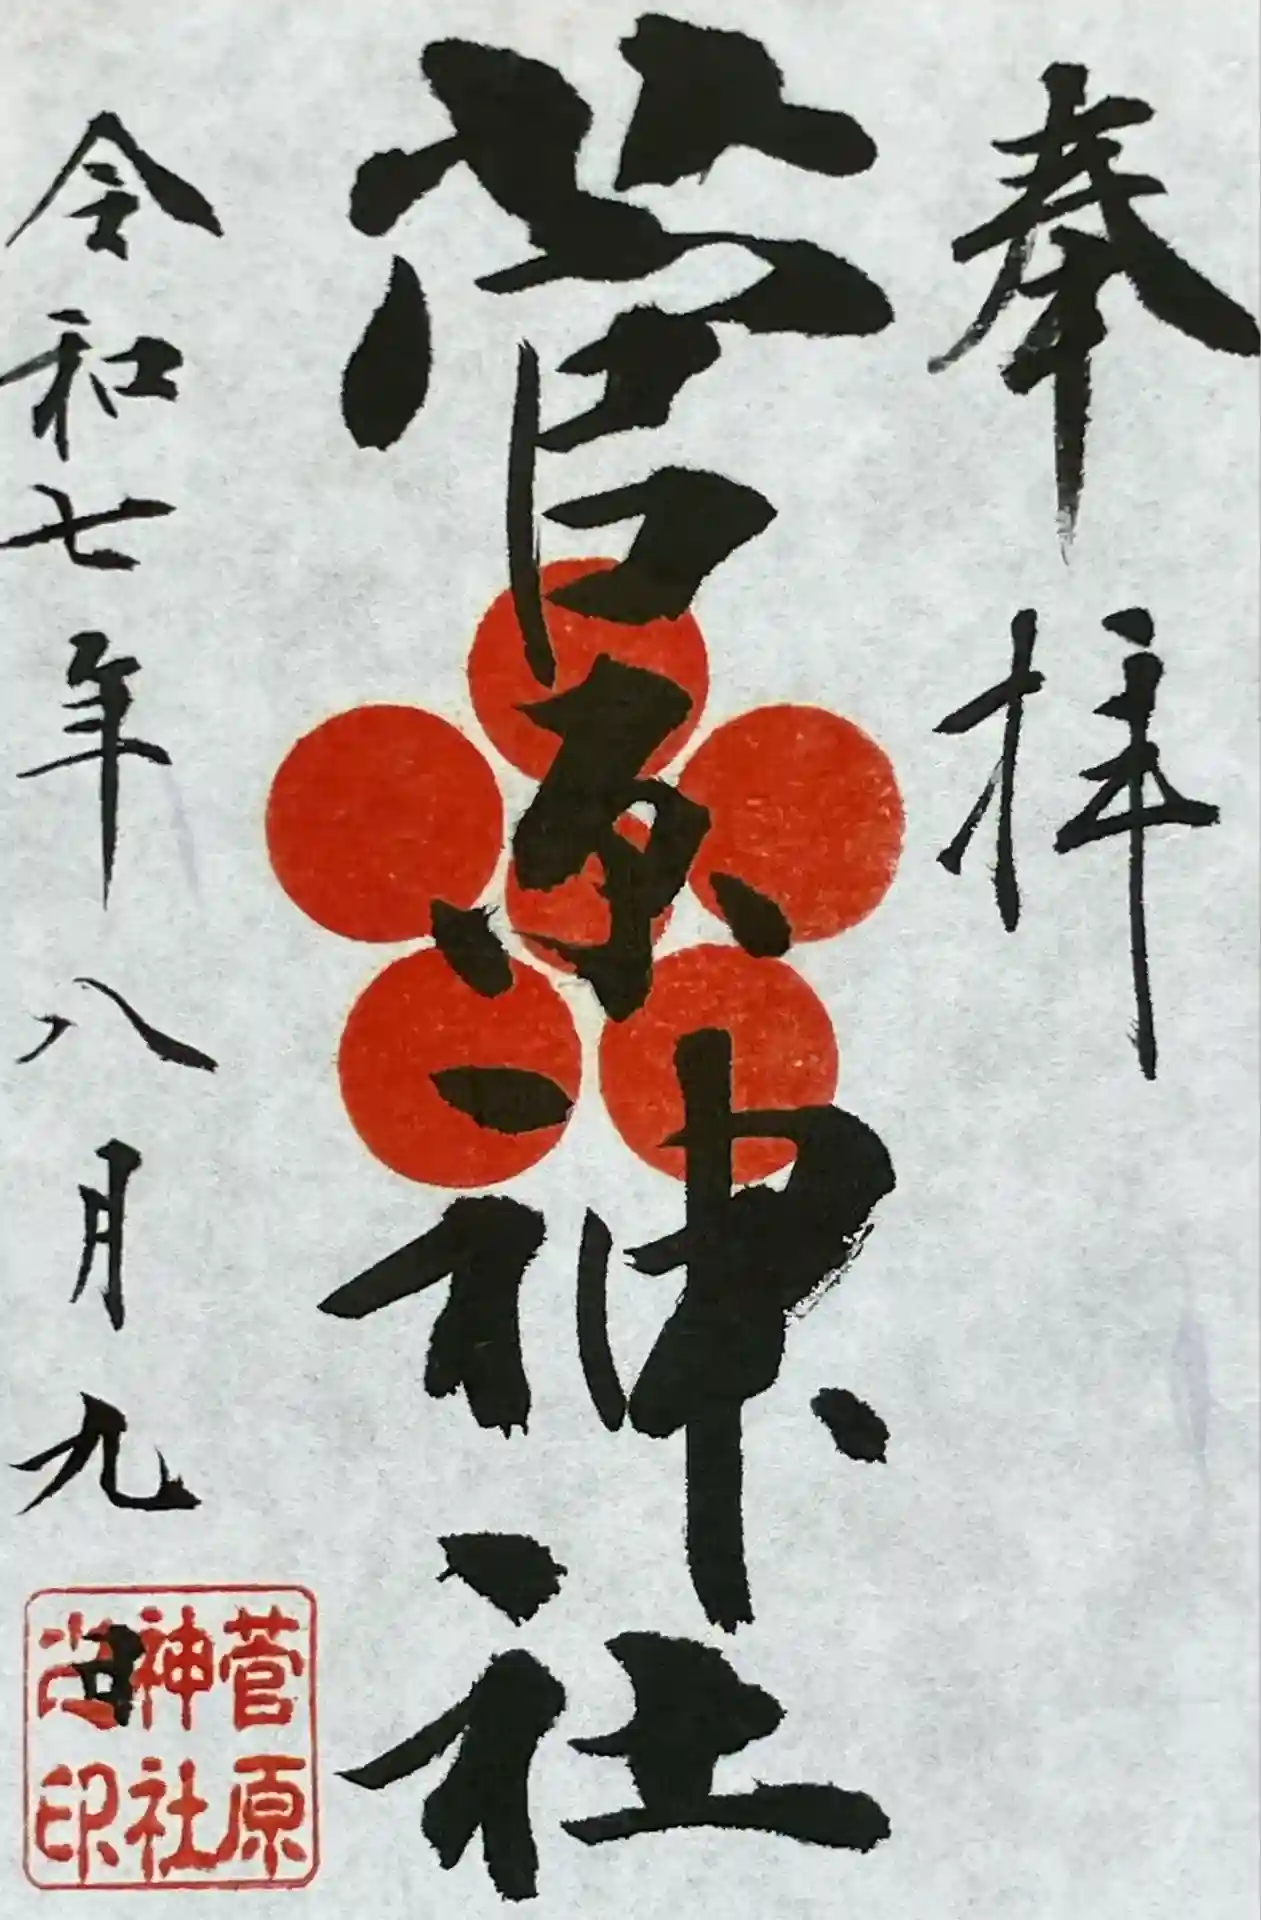 奉拝
菅原神社
令和七年八月九日
菅原
神社
印